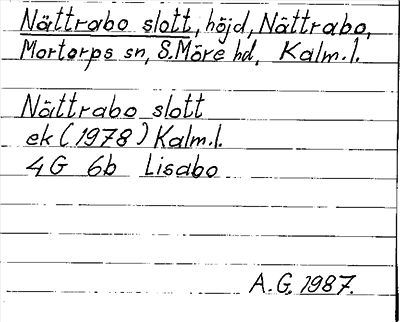 Nättrabo slott, höjd, Nättrabo,
Mortorps sn, S. Möre hd, Kalm. l.
Nättrabo slott
ek (1978) Kalm. l.
4G 6b Lisabo
A.G. 1987.